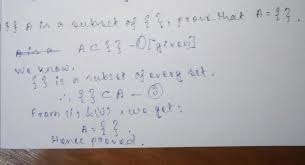 If A is a subset of { }, prove that A = { }.
A ⊂ { } - ① [given]
We know,
{ } is a subset of every set.
∴ { } ⊂ A - ②
From (i) & (ii), we get:
A = { }
Hence proved.